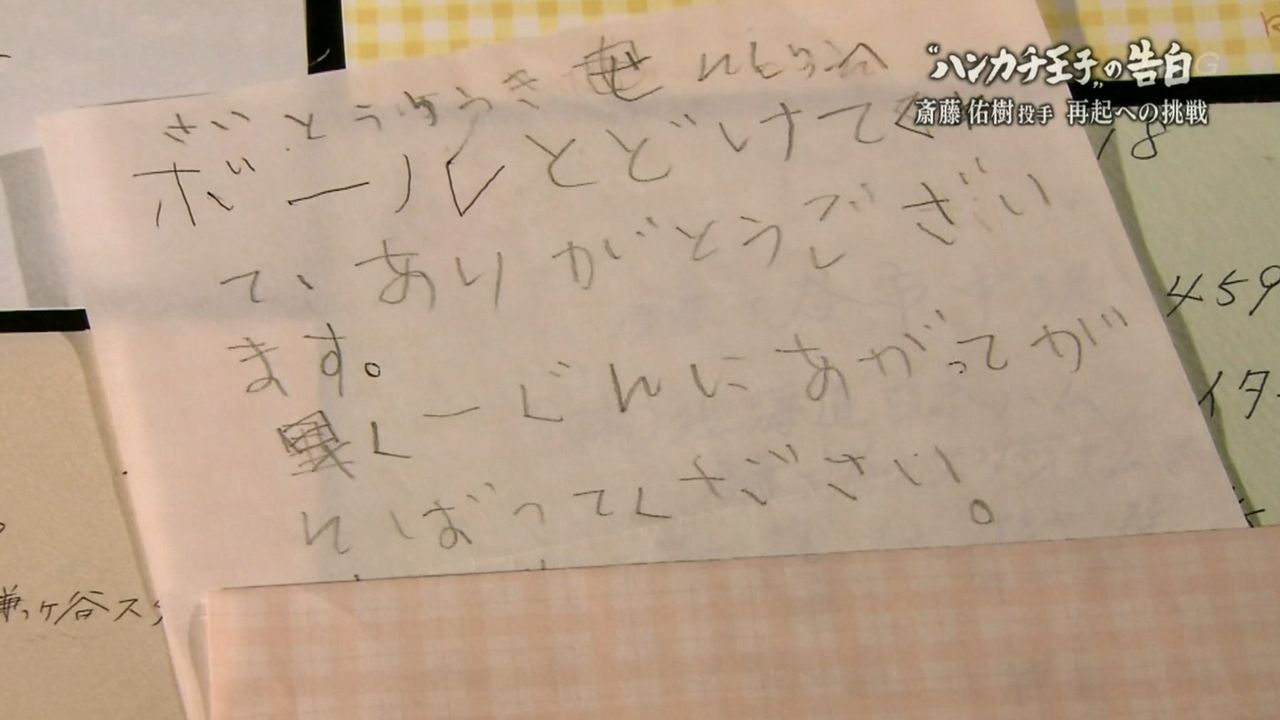 “ハンカチ王子”の告白
斎藤 佑樹投手 再起への挑戦
さいとうゆうき せんとうへ
ボールとどけてくれ
て、ありがとうござい
ます。
くーぐんにあがってが
んばってくださざい。
18
459
イタ
鎌ヶ谷スタ